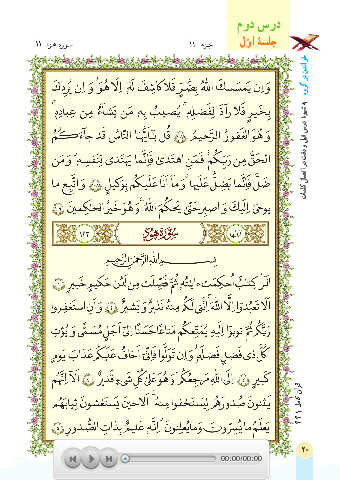 درس دوم
جلسهٔ اوّل
جزء ۱۱
سوره هود ۱۱
وَ اِن يَمسَسكَ اللهُ بِضُرٍّ فَلا كاشِفَ لَهُ اِلّا هُوَ وَ اِن يُرِدكَ
بِخَيرٍ فَلا رادَّ لِفَضلِهِ يُصيبُ بِهِ مَن يَشاءُ مِن عِبادِهِ
وَ هُوَ الغَفورُ الرَّحيمُ ۱۰۷ قُل يا اَيُّهَا النّاسُ قَد جاءَكُمُ
الحَقُّ مِن رَبِّكُم فَمَنِ اهتَدىٰ فَاِنَّما يَهتَدي لِنَفسِهِ وَ مَن
ضَلَّ فَاِنَّما يَضِلُّ عَلَيها وَ ما اَنَا عَلَيكُم بِوَكيلٍ ۱۰۸ وَ اتَّبِع ما
يوحىٰ اِلَيكَ وَ اصبِر حَتّىٰ يَحكُمَ اللهُ وَ هُوَ خَيرُ الحاكِمينَ ۱۰۹
سُورَةُ هُودٍ
۱۲۳
بِسمِ اللهِ الرَّحمٰنِ الرَّحيمِ
الٓر كِتابٌ اُحكِمَت ءاياتُهُ ثُمَّ فُصِّلَت مِن لَدُن حَكيمٍ خَبيرٍ ۱
اَلّا تَعبُدوا اِلَّا اللهَ اِنَّني لَكُم مِنهُ نَذيرٌ وَ بَشيرٌ ۲ وَ اَنِ استَغفِروا
رَبَّكُم ثُمَّ توبوا اِلَيهِ يُمَتِّعكُم مَتاعًا حَسَنًا اِلىٰ اَجَلٍ مُسَمًّى وَ يُؤتِ
كُلَّ ذي فَضلٍ فَضلَهُ وَ اِن تَوَلَّوا فَاِنّي اَخافُ عَلَيكُم عَذابَ يَومٍ
كَبيرٍ ۳ اِلَى اللهِ مَرجِعُكُم وَ هُوَ عَلىٰ كُلِّ شَيءٍ قَديرٌ ۴ اَلا اِنَّهُم
يَثنونَ صُدورَهُم لِيَستَخفوا مِنهُ اَلا حينَ يَستَغشونَ ثِيابَهُم
يَعلَمُ ما يُسِرّونَ وَ ما يُعلِنونَ اِنَّهُ عَليمٌ بِذاتِ الصُّدورِ ۵
قرآن کامل ۲۲۱
۲۰
00:00/00:00